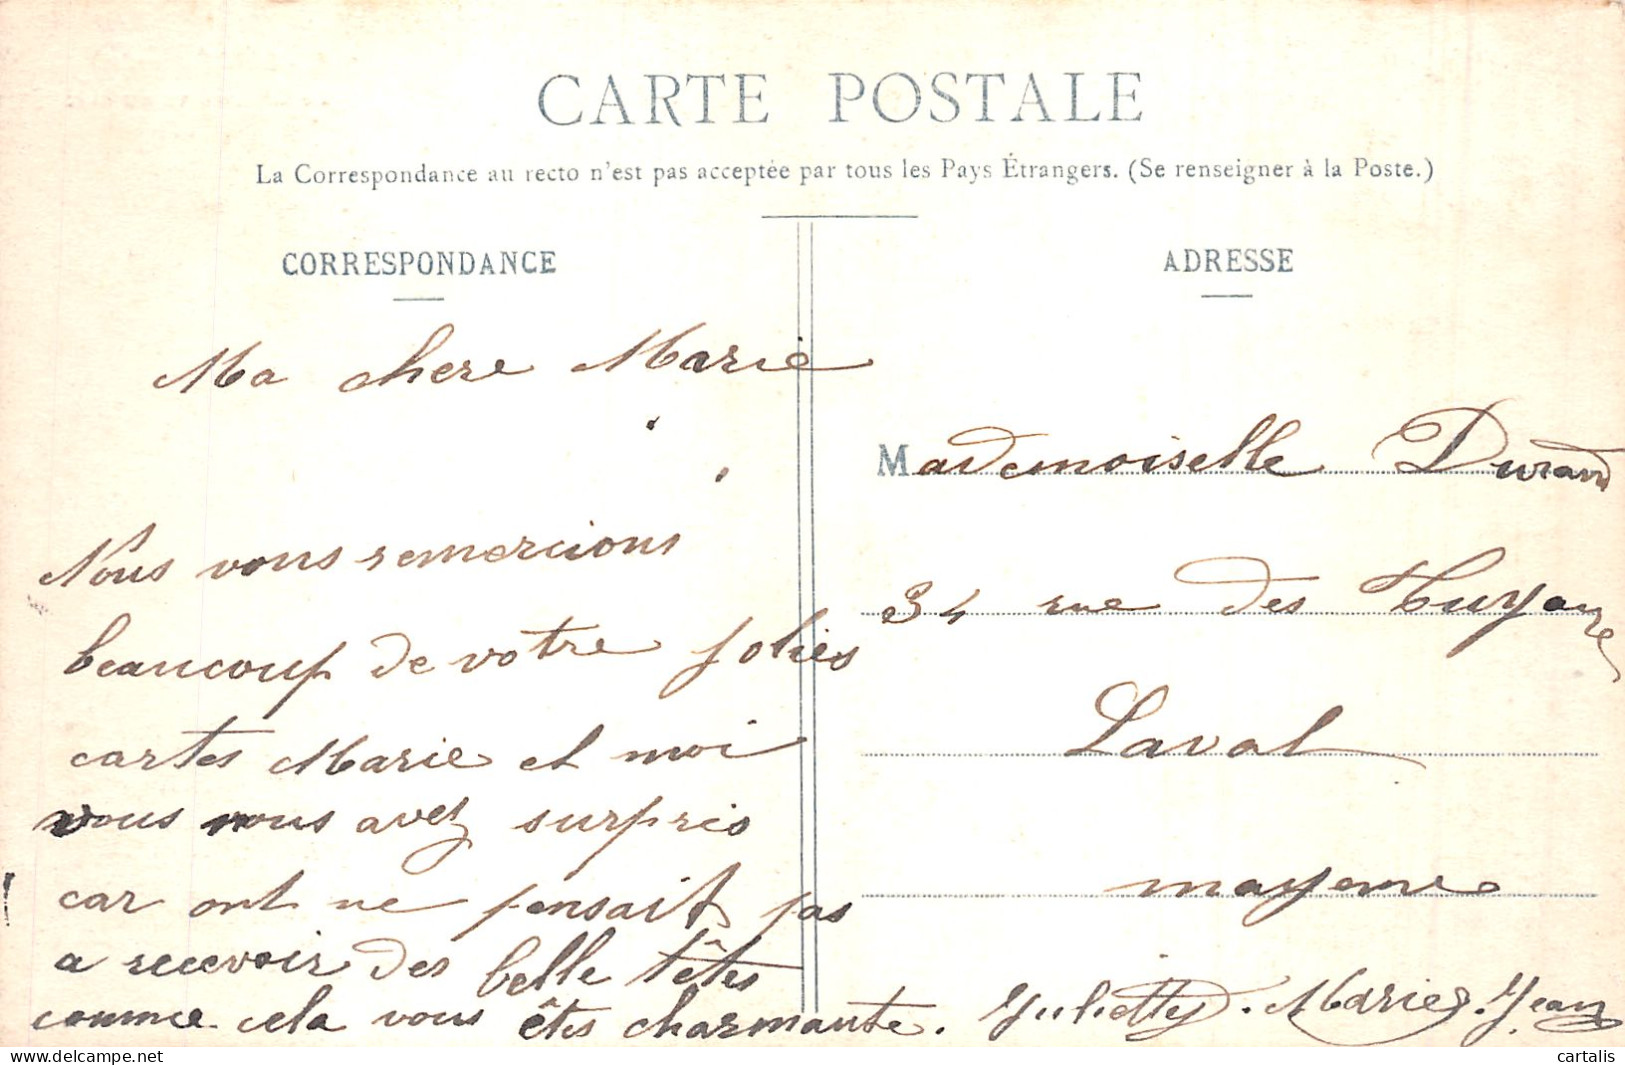 CARTE POSTALE
La Correspondance au recto n'est pas acceptée par tous les Pays Étrangers. (Se renseigner à la Poste.)
CORRESPONDANCE
Ma chere Marie
Nous vous remercions
beaucoup de votre jolies
cartes Marie et moi
vous nous avez surpris
car ont ne pensait pas
a recevoir des belle têtes
comme cela vous êtes charmante. Juliette. Marie. Jean
ADRESSE
Mademoiselle Durand
34 rue des
Laval
mayenne
cartalis